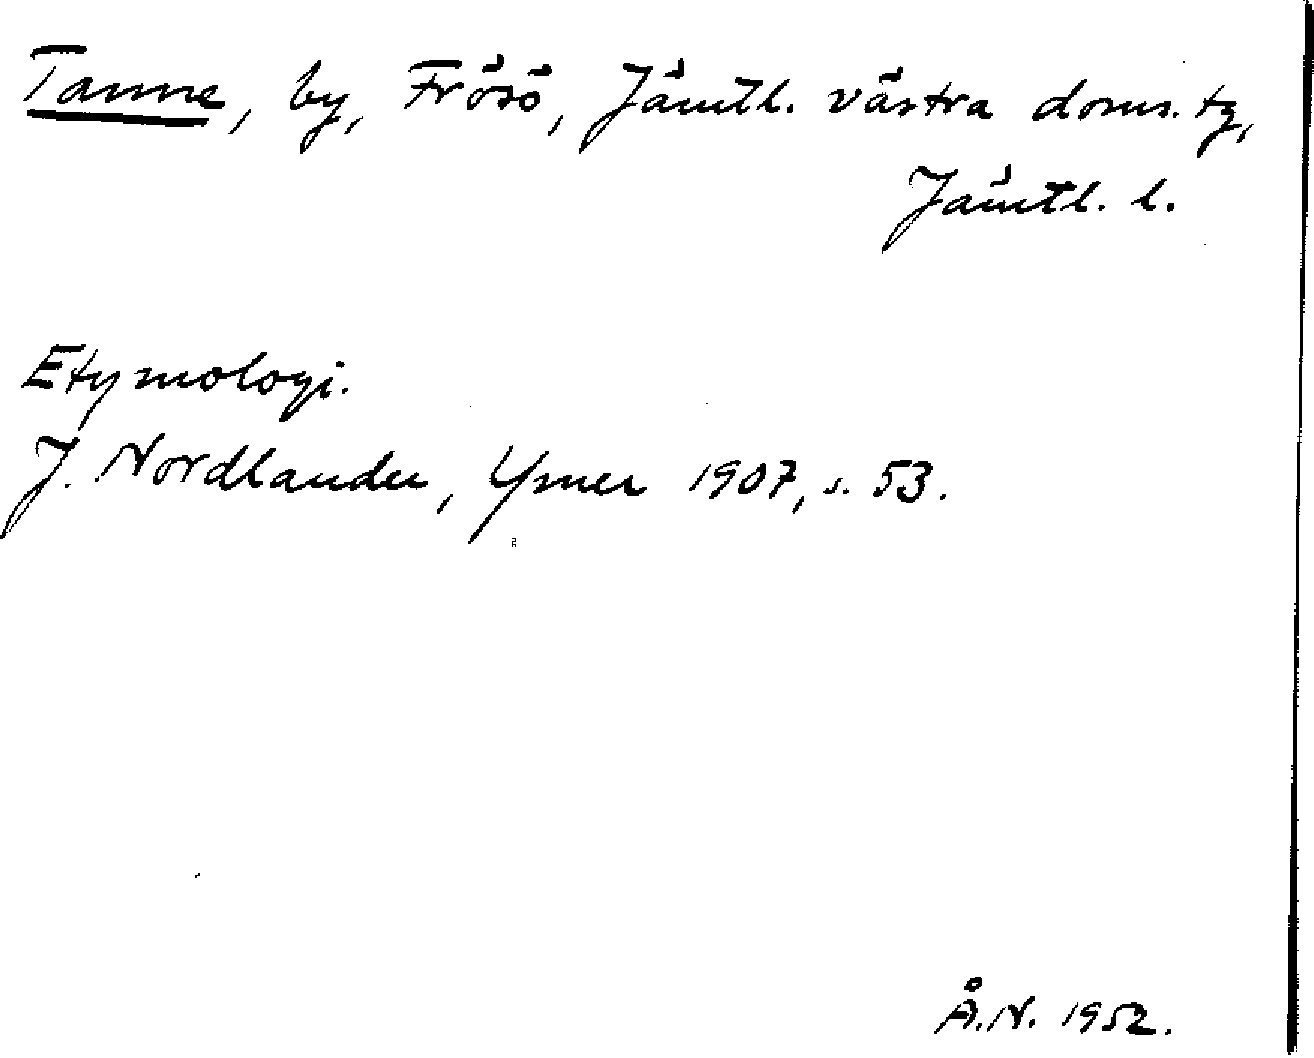 Tanne, by, Frösö, Jämtl. västra doms. tg,
Jämtl. l.
Etymologi.
J. Nordlander, Ymer 1907, s. 53.
Å.N. 1952.